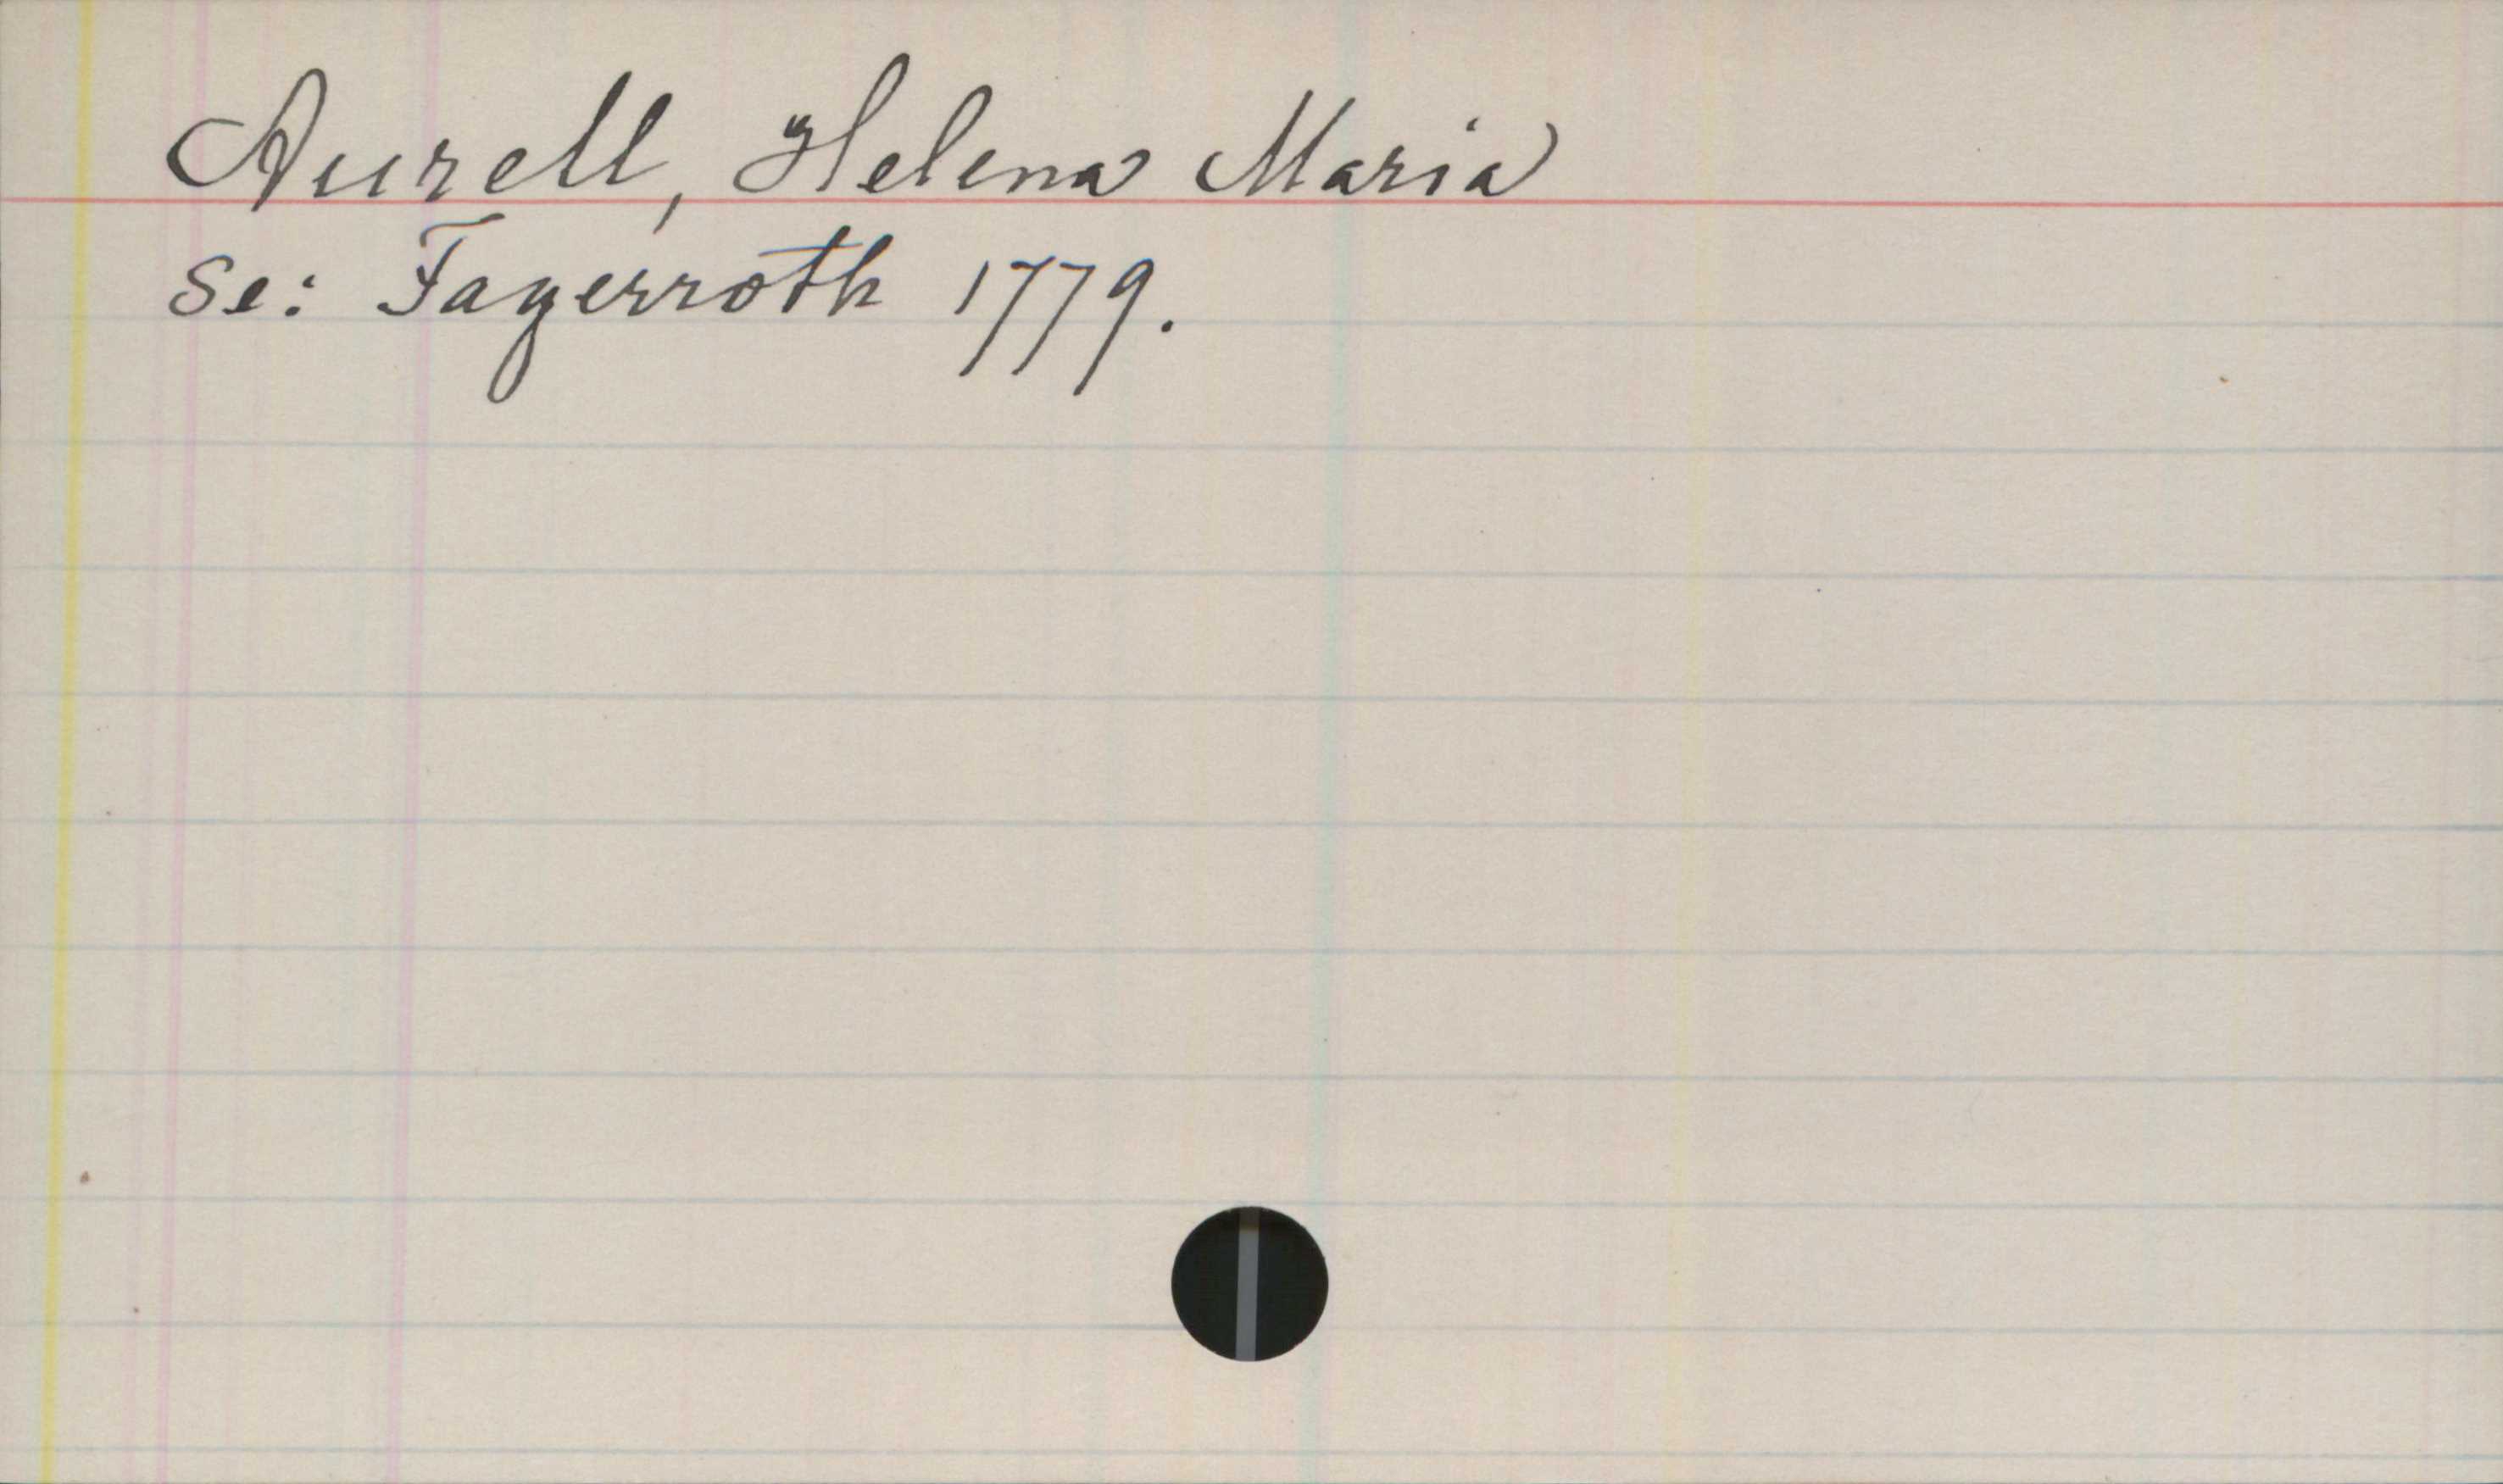 Aurell, Helena Maria
Se: Fagerroth 1779.